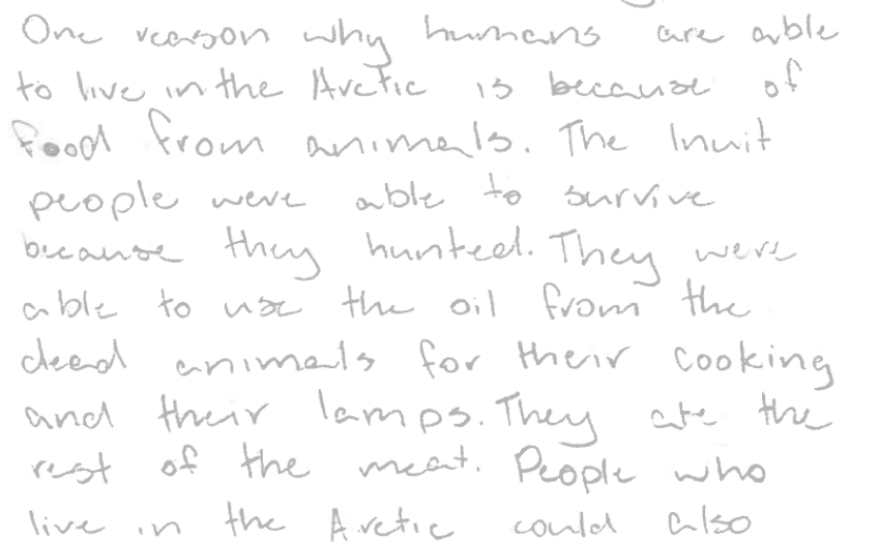 One reason why humans are able
to live in the Arctic is because of
food from animals. The Inuit
people were able to survive
because they hunted. They were
able to use the oil from the
dead animals for their cooking
and their lamps. They ate the
rest of the meat. People who
live in the Arctic could also